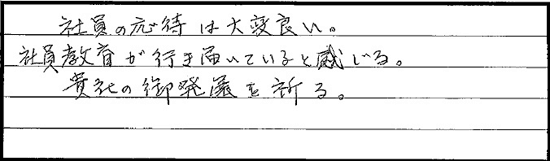 社員の応待は大変良い。
社員教育が行き届いていると感じる。
貴社の御発展を祈る。